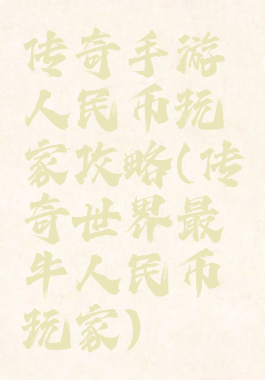 传奇手游
人民币玩
家攻略(传
奇世界最
牛人民币
玩家)